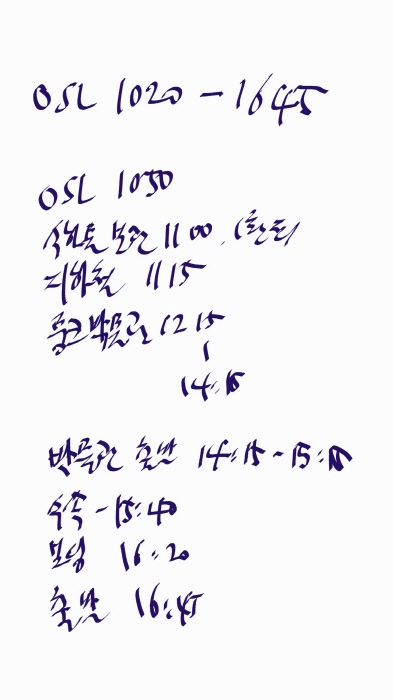 OSL 1020 - 1645
OSL 1050
보관 1100 (환전)
지하철 1115
뭉크박물관 1215
|
14:15
박물관 출발 14:15 - 15:15
수속 - 15:40
보딩 16:20
출발 16:45